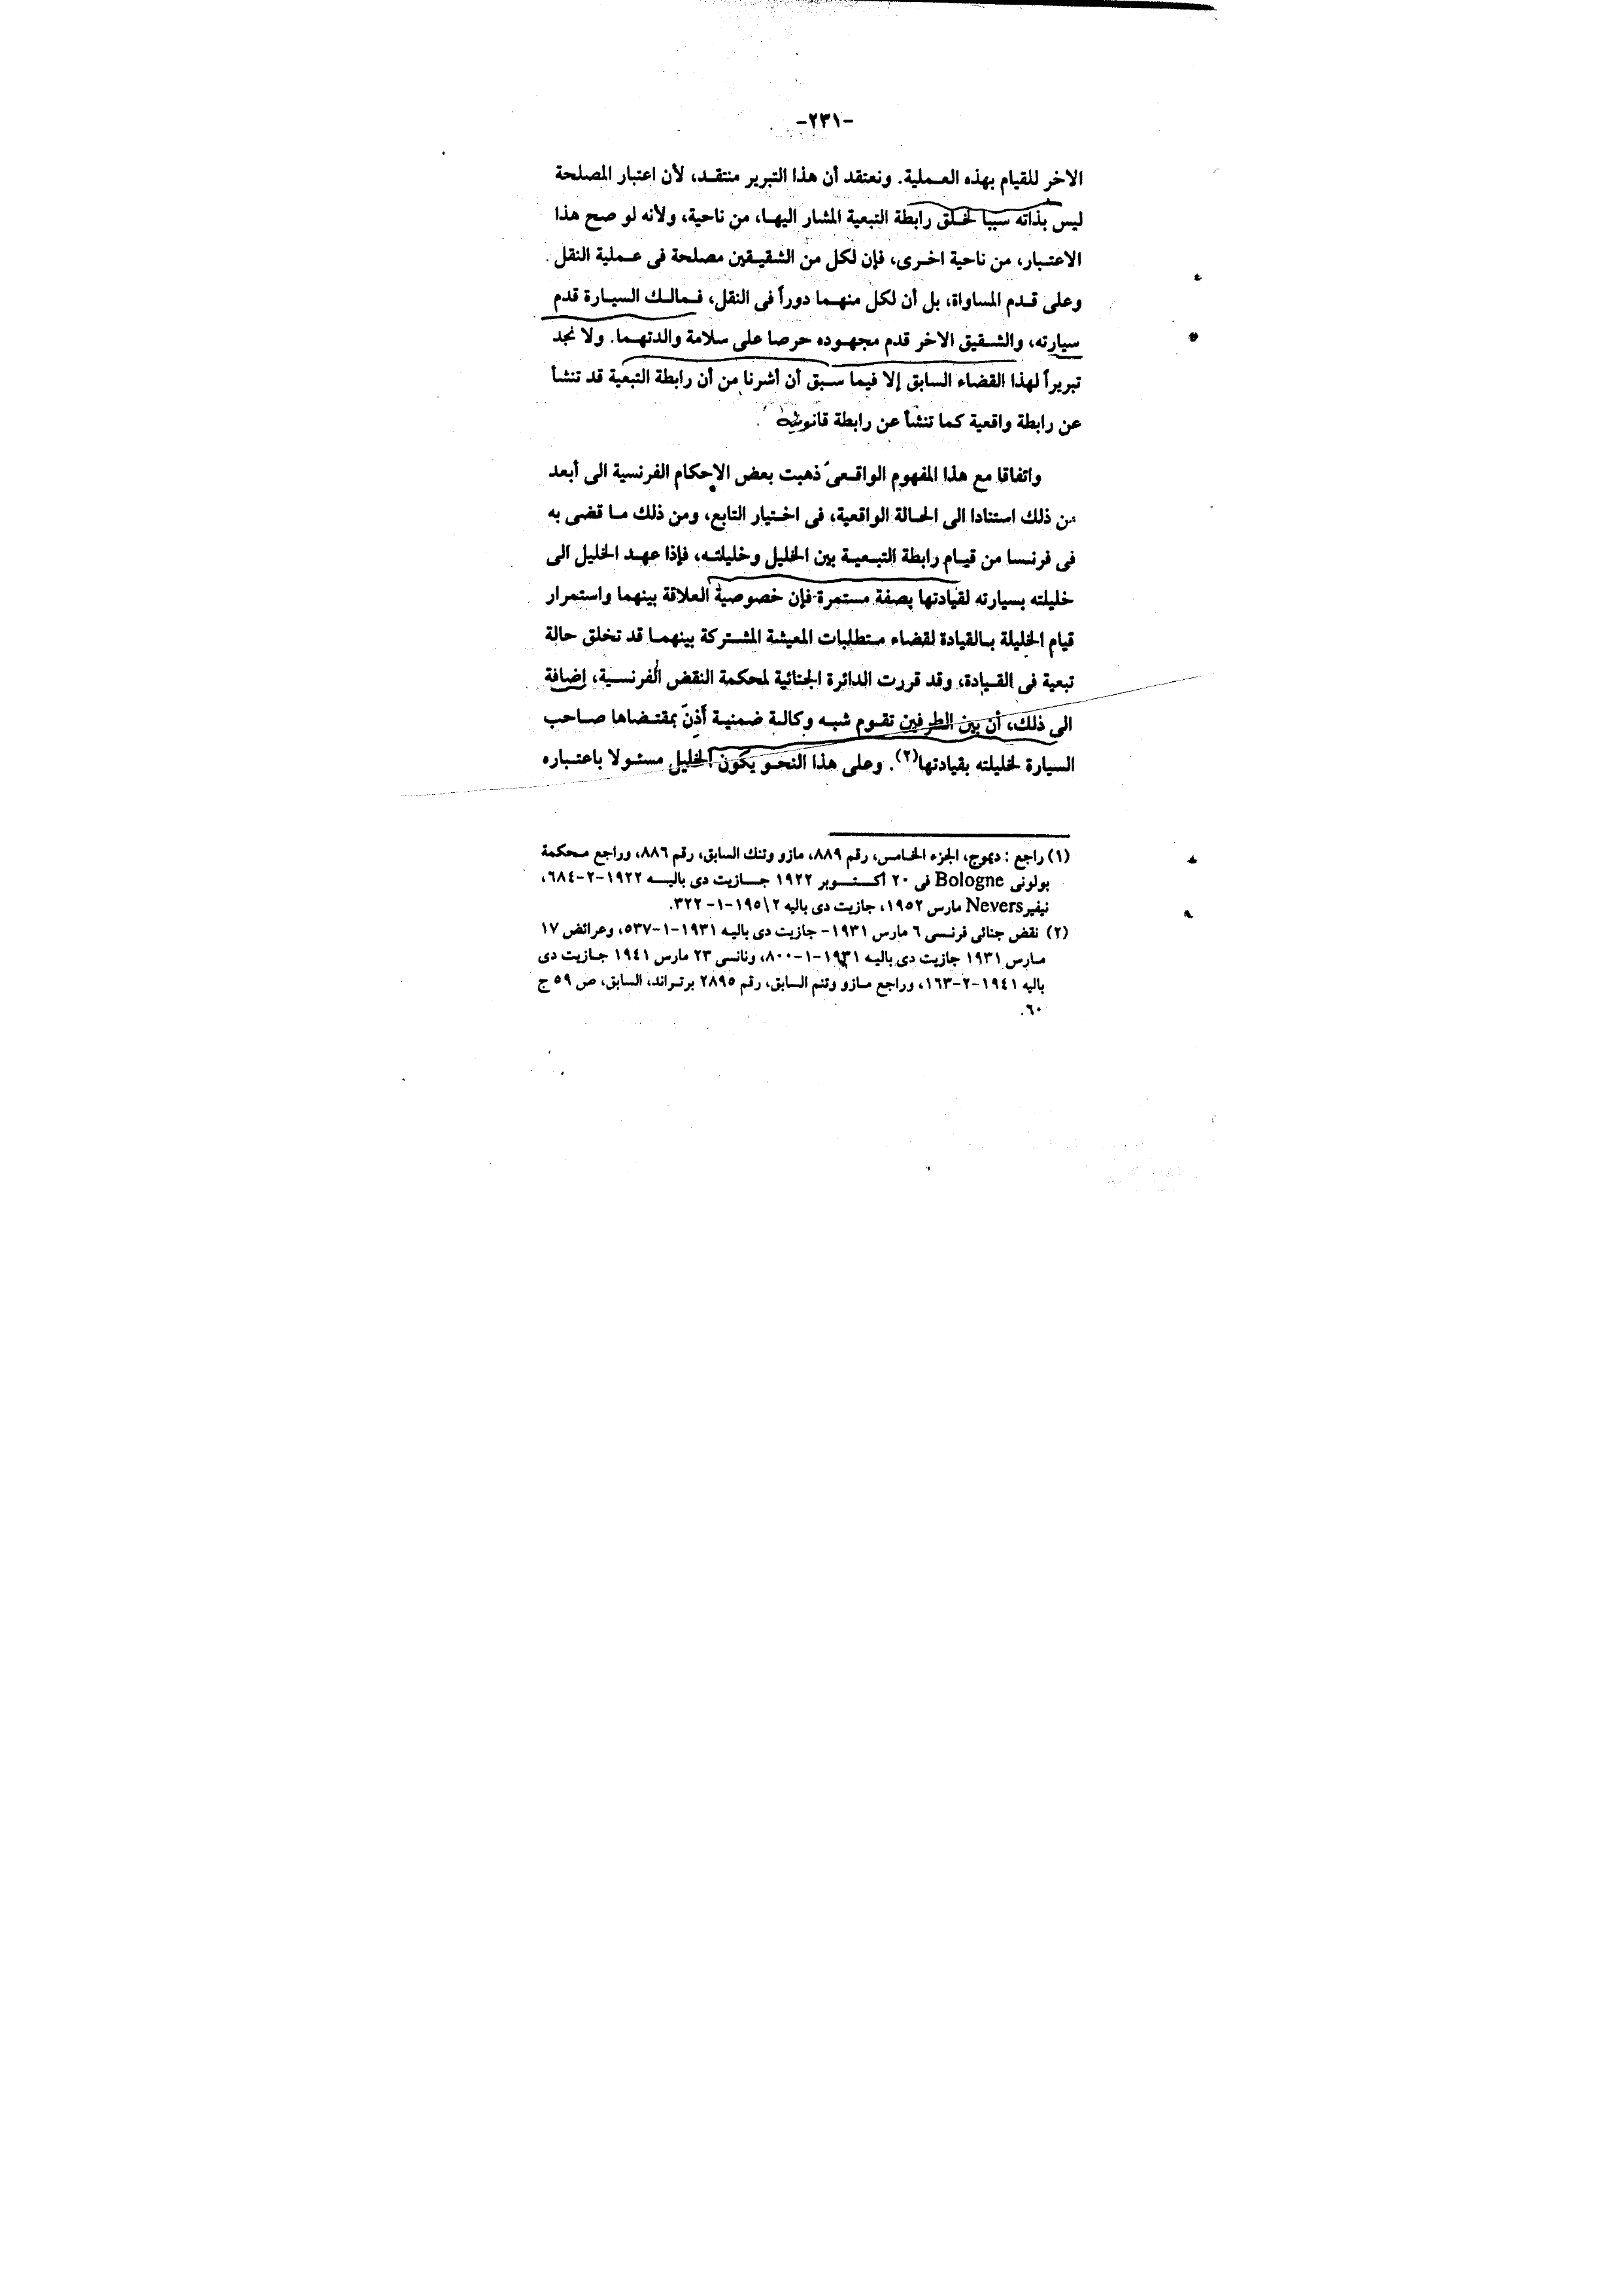 -٢٣١-
الاخر للقيام بهذه العملية. ونعتقد أن هذا التبرير منتقد، لأن اعتبار المصلحة
ليس بذاته سببا لخلق رابطة التبعية المشار اليها، من ناحية، ولأنه لو صح هذا
الاعتبار، من ناحية اخرى، فإن لكل من الشقيقين مصلحة فى عملية النقل
وعلى قدم المساواة، بل أن لكل منهما دوراً فى النقل، فمالك السيارة قدم
سيارته، والشقيق الاخر قدم مجهوده حرصا على سلامة والدتهما. ولا نجد
تبريراً لهذا القضاء السابق إلا فيما سبق أن أشرنا من أن رابطة التبعية قد تنشأ
عن رابطة واقعية كما تنشأ عن رابطة قانونية
واتفاقا مع هذا المفهوم الواقعى ذهبت بعض الاحكام الفرنسية الى أبعد
من ذلك استنادا الى الحالة الواقعية، فى اختيار التابع، ومن ذلك ما قضى به
فى فرنسا من قيام رابطة التبعية بين الخليل وخليلته، فإذا عهد الخليل الى
خليلته بسيارته لقيادتها بصفة مستمرة فإن خصوصية العلاقة بينهما واستمرار
قيام الخليلة بالقيادة لقضاء متطلبات المعيشة المشتركة بينهما قد تخلق حالة
تبعية فى القيادة، وقد قررت الدائرة الجنائية لمحكمة النقض الفرنسية، إضافة
الى ذلك، أن بين الطرفين تقوم شبه وكالة ضمنية أذن بمقتضاها صاحب
السيارة لخليلته بقيادتها(٢). وعلى هذا النحو يكون الخليل مسئولا باعتباره
(١) راجع : ديموج، الجزء الخامس، رقم ٨٨٩، مازو وتنك السابق، رقم ٨٨٦، وراجع محكمة
بولونى Bologne فى ٢٠ أكتوبر ١٩٢٢ جازيت دى باليه ١٩٢٢-٢-٦٨٤،
نيفير Nevers مارس ١٩٥٢، جازيت دى باليه ١٩٥\٢-١-٣٢٢.
(٢) نقض جنائى فرنسى ٦ مارس ١٩٣١- جازيت دى باليه ١٩٣١-١-٥٣٧، وعرائض ١٧
مارس ١٩٣١ جازيت دى باليه ١٩٣١-١-٨٠٠، ونانسى ٢٣ مارس ١٩٤١ جازيت دى
باليه ١٩٤١-٢-١٦٣، وراجع مازو وتنم السابق، رقم ٢٨٩٥ برتراند، السابق، ص ٥٩ ج
٦٠.